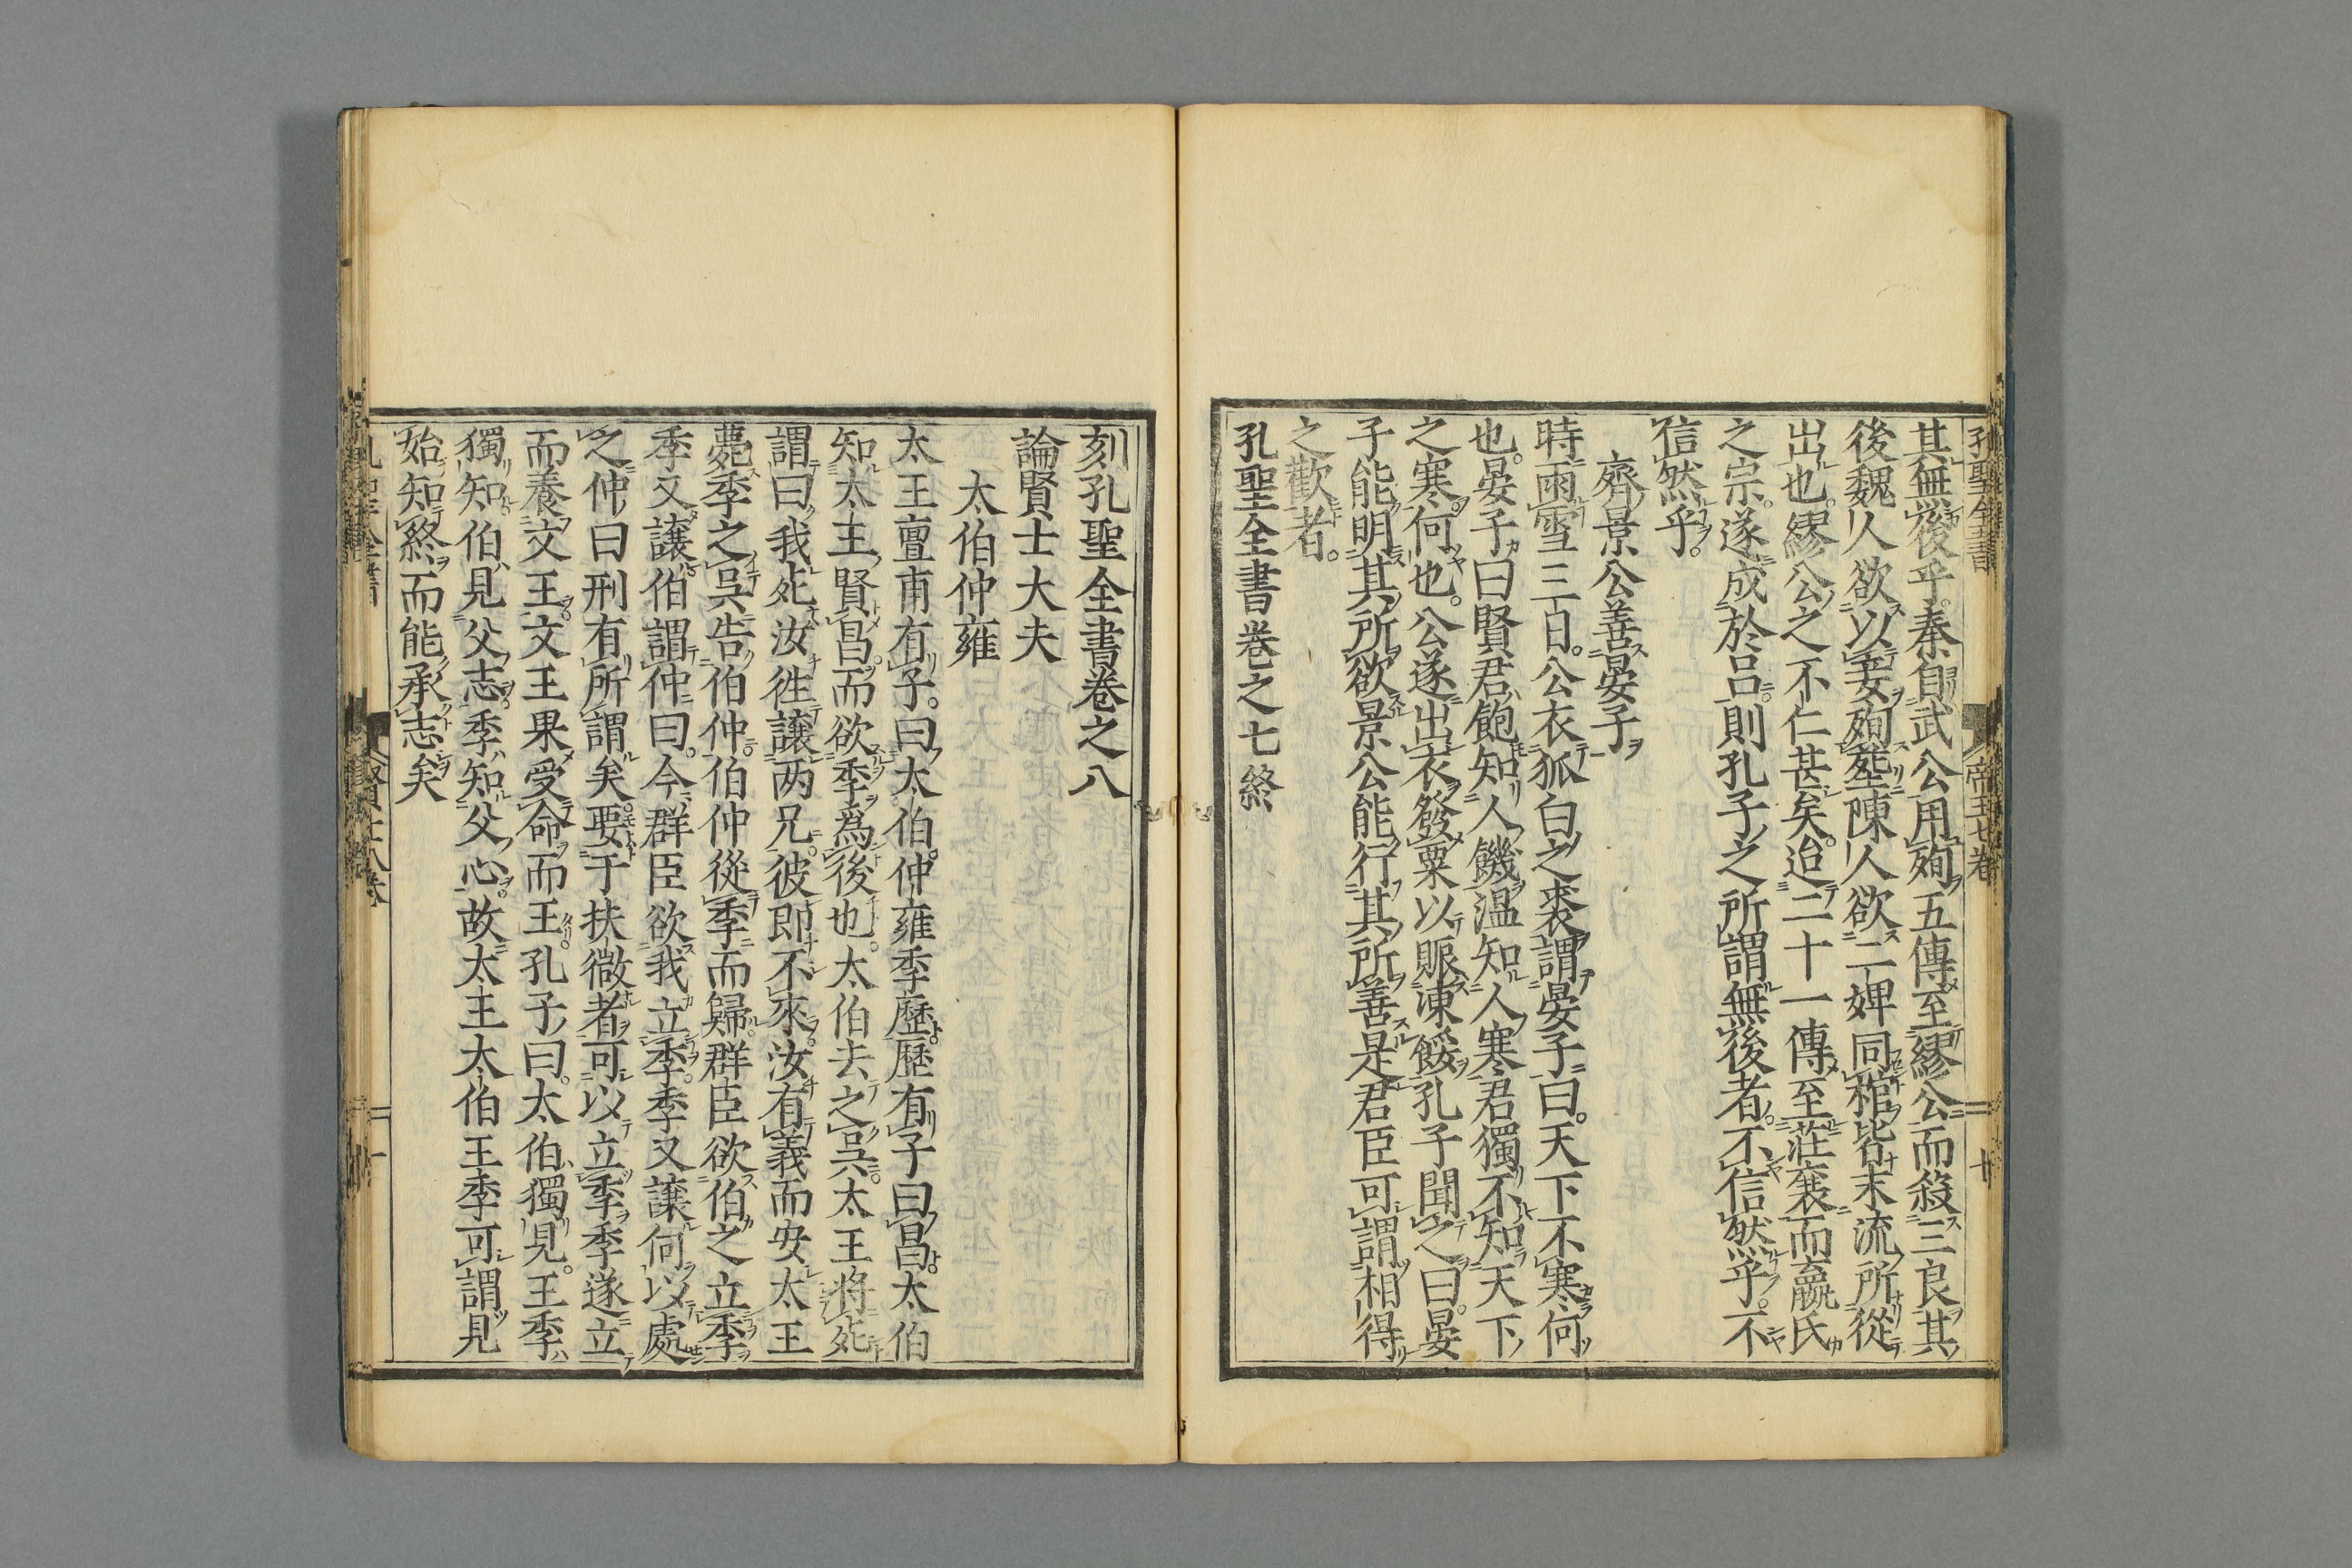 孔聖全書
帝王七卷
廿
其無後乎秦自武公用殉五傳至繆公而殺三良其
後魏人欲以妾殉塟陳人欲二婢同棺皆末流所從
出也繆公之不仁甚矣迨二十一傳至莊襄而嬴氏
之宗遂成於呂則孔子之所謂無後者不信然乎不
信然乎
齊景公善晏子
時雨雪三日公衣狐白之裘謂晏子曰天下不寒何
也晏子曰賢君飽知人饑溫知人寒君獨不知天下
之寒何也公遂出衣發粟以賑凍餒孔子聞之曰晏
子能明其所欲景公能行其所善是君臣可謂相得
之歡者
孔聖全書卷之七終
刻孔聖全書卷之八
論賢士大夫
太伯仲雍
太王亶甫有子曰太伯仲雍季歷歷有子曰昌太伯
知太王賢昌而欲季為後也太伯去之吳太王將死
謂曰我死汝徃讓两兄彼即不來汝有義而安太王
薨季之吳告伯仲伯仲從季而歸群臣欲伯之立季
季又讓伯謂仲曰今群臣欲我立季季又讓何以處
之仲曰刑有所謂矣要于扶微者可以立季季遂立
而養文王文王果受命而王孔子曰太伯獨見王季
獨知伯見父志季知父心故太王太伯王季可謂見
始知終而能承志矣
孔聖全書
賢士八卷
一